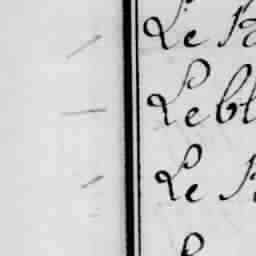 Le
Lebl
Le